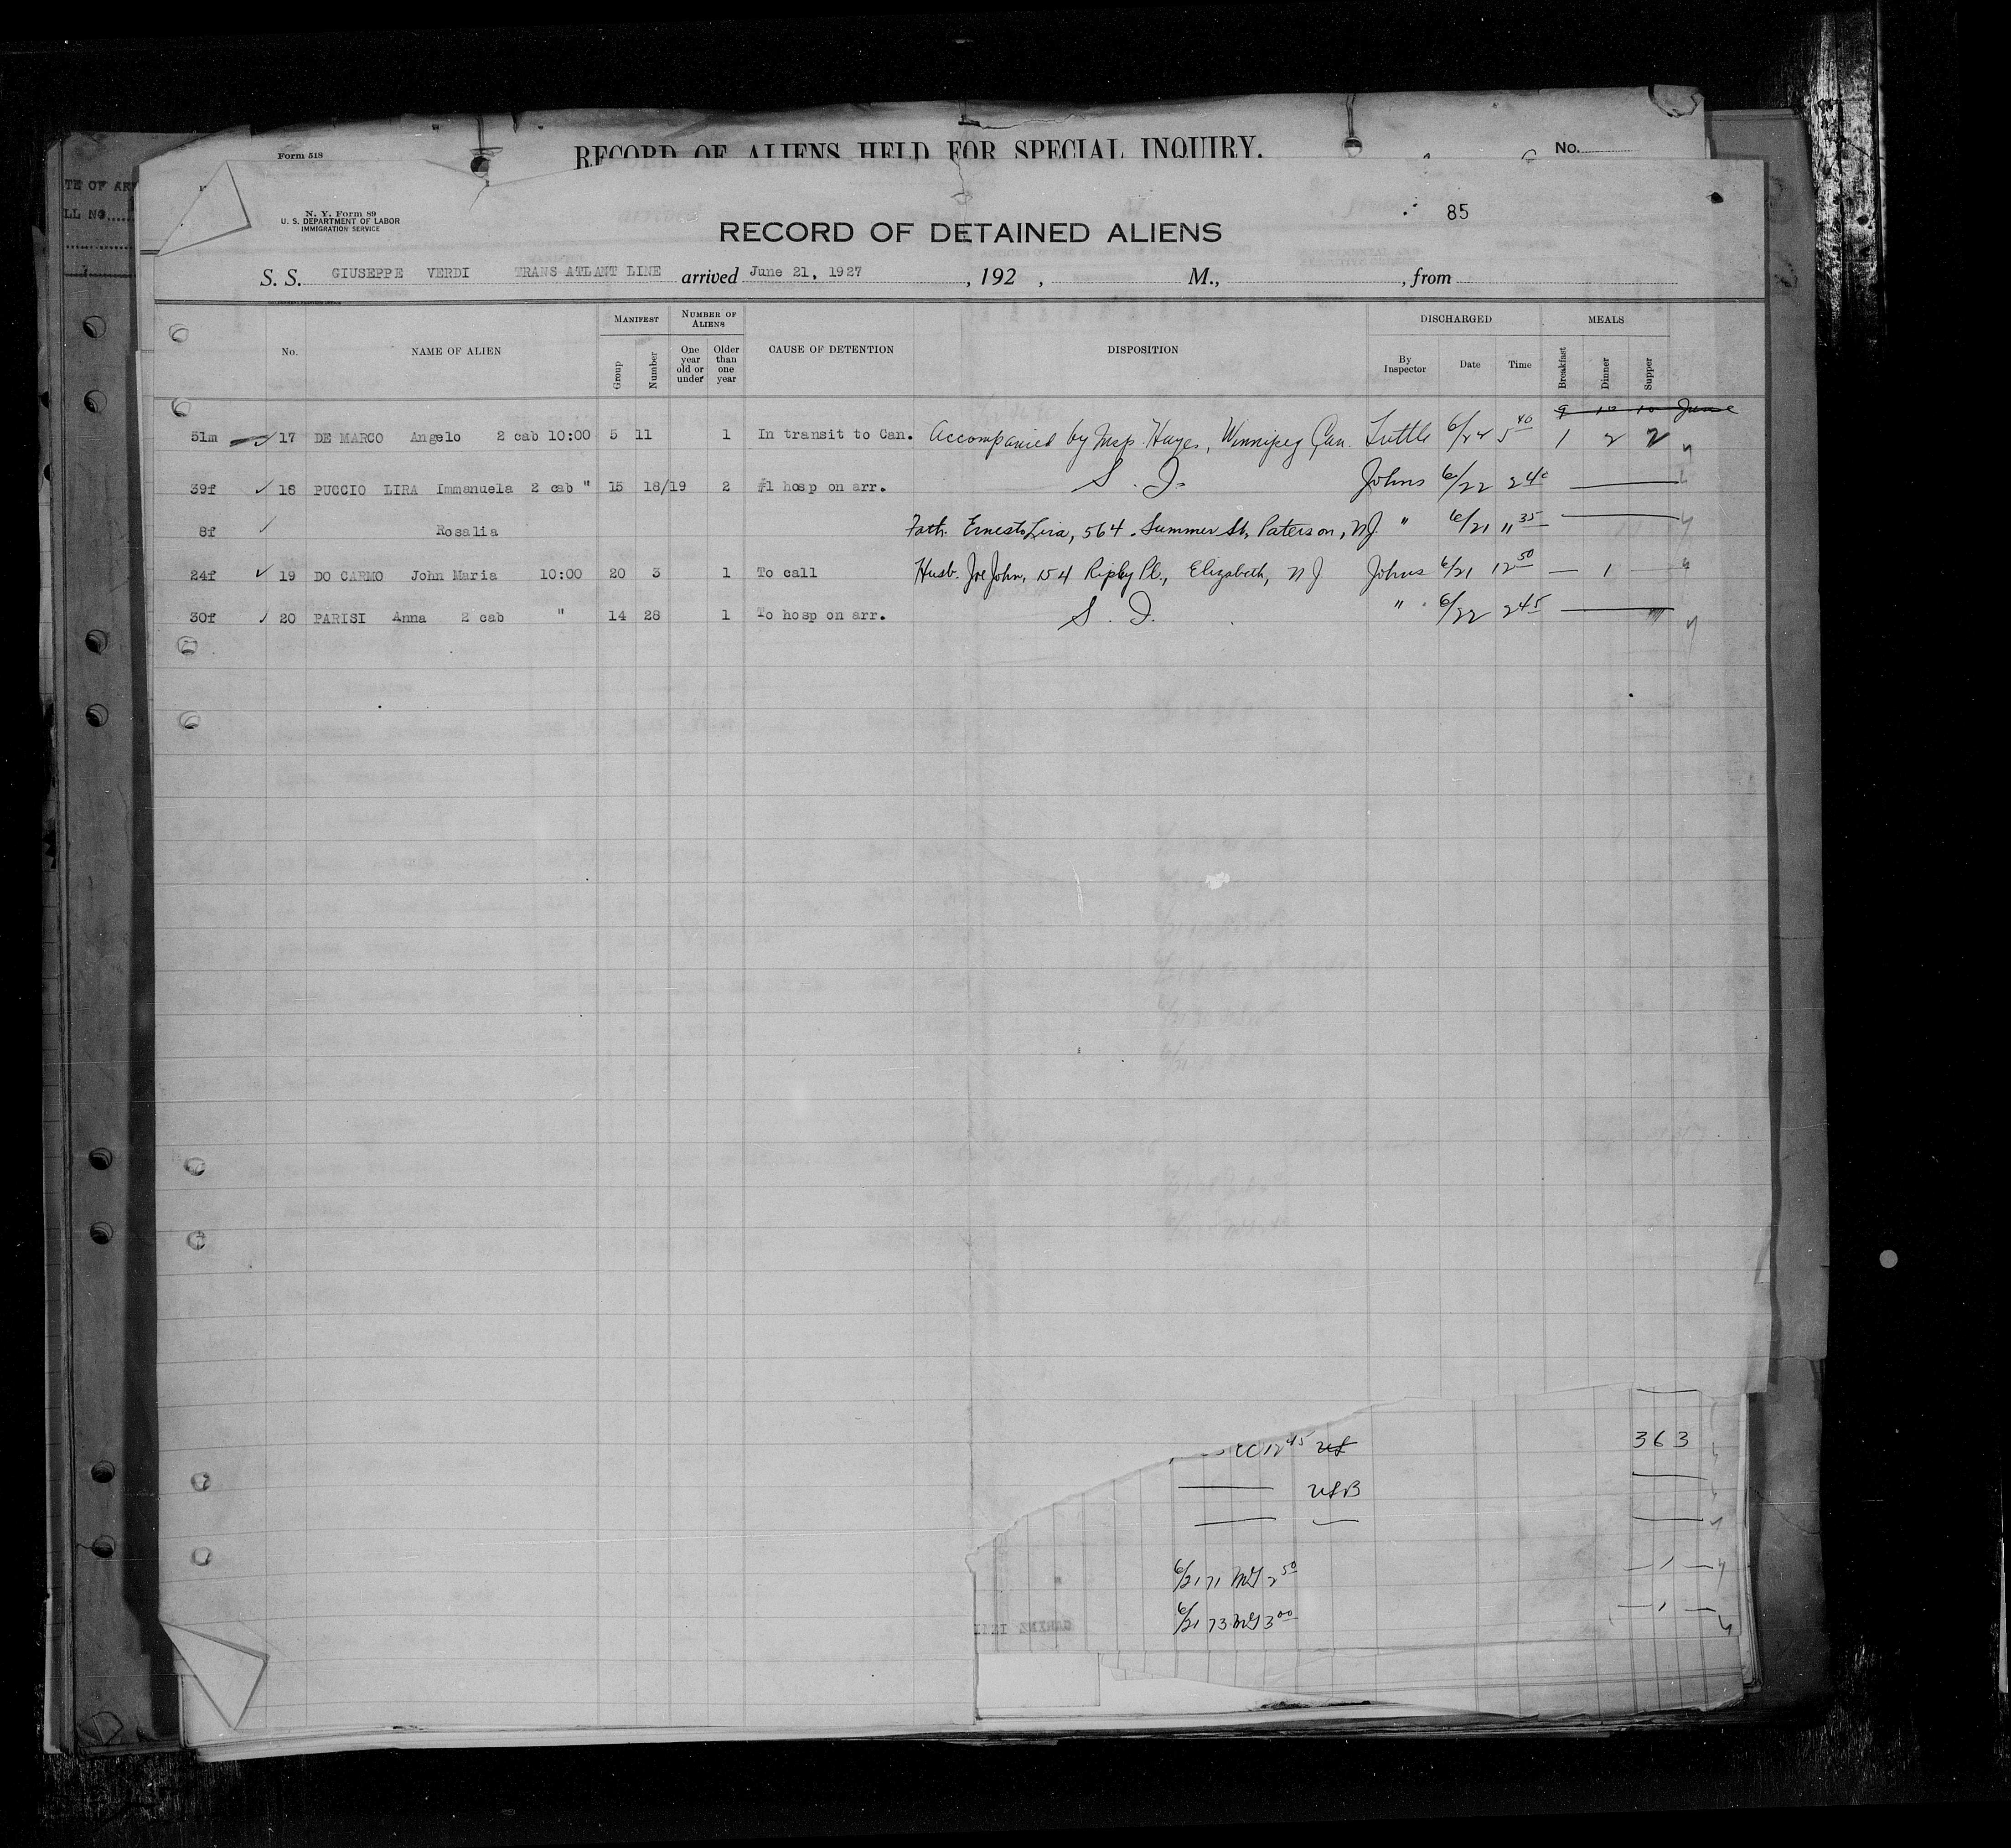 Form 518
RECORD OF ALIENS HELD FOR SPECIAL INQUIRY.
No.
TE OF
LL NO
N. Y. Form 89
U. S. DEPARTMENT OF LABOR
IMMIGRATION SERVICE
85
RECORD OF DETAINED ALIENS
S. S. GIUSEPPE VERDI TRANS ATLANT LINE arrived June 21, 1927, 192 , M., , from
No. NAME OF ALIEN MANIFEST Group Number NUMBER OF ALIENS One year old or under Older than one year CAUSE OF DETENTION DISPOSITION DISCHARGED By Inspector Date Time MEALS Breakfast Dinner Supper
9 10 10 June
51m 17 DE MARCO Angelo 2 cab 10:00 5 11 1 In transit to Can. Accompanied by Hayes, Winnipeg Can. Tuttle 6/24 5 40 1 2 2
39f ✓ 18 PUCCIO LIRA Immanuela 2 cab " 15 18/19 2 #1 hosp on arr. S. I. Johns 6/22 2 40
8f ✓ Rosalia Fath. Ernesto Lira, 564 Summer St, Paterson, NJ. " 6/21 11 35
24f ✓ 19 DO CARMO John Maria 10:00 20 3 1 To call Husb. Joe John, 154 Ripley Pl., Elizabeth, NJ Johns 6/21 12 50 — 1 —
30f ✓ 20 PARISI Anna 2 cab " 14 28 1 To hosp on arr. S. I. " 6/22 2 45
12 45 363
6/21 71 2 50 — 1 —
6/21 73 3 00 — 1 —